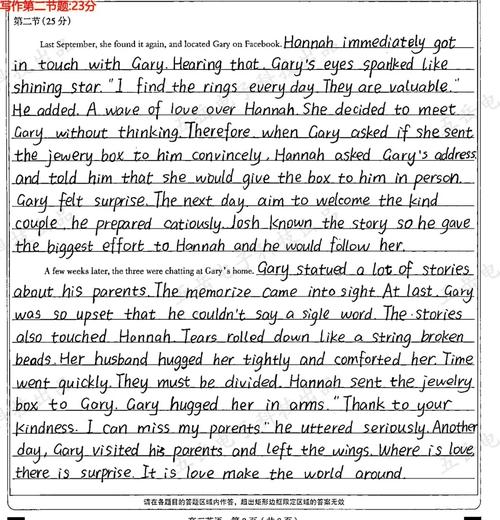 写作第二节题:23分
第二节(25分)
Last September, she found it again, and located Gary on Facebook. Hannah immediately got
in touch with Gary. Hearing that, Gary's eyes sparkled like
shining star. "I find the rings every day. They are valuable."
He added. A wave of love over Hannah. She decided to meet
Gary without thinking. Therefore, when Gary asked if she sent
the jewery box to him convincely, Hannah asked Gary's address
and told him that she would give the box to him in person.
Gary felt surprise. The next day, aim to welcome the kind
couple, he prepared catiously. Josh known the story so he gave
the biggest effort to Hannah and he would follow her.
A few weeks later, the three were chatting at Gary's home. Gary statued a lot of stories
about his parents. The memorize came into sight. At last, Gary
was so upset that he couldn't say a sigle word. The stories
also touched Hannah. Tears rolled down like a string broken
beads. Her husband hugged her tightly and comforted her. Time
went quickly. They must be divided. Hannah sent the jewelry
box to Gary. Gary hugged her in arms. "Thank to your
kindness. I can miss my parents." he uttered seriously. Another
day, Gary visited his parents and left the wings. Where is love,
there is surprise. It is love make the world around.
请在各题目的答题区域内作答，超出矩形边框限定区域的答案无效